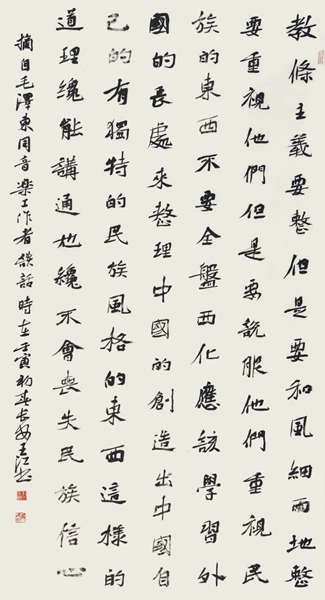 教條主義要整但是要和風細雨地整
要重視他們但是要說服他們重視民
族的東西不要全盤西化應該學習外
國的長處來整理中國的創造出中國自
己的有獨特的民族風格的東西這樣的
道理纔能講通也纔不會喪失民族信心
摘自毛澤東同音樂工作者談話時在壬寅初春長安